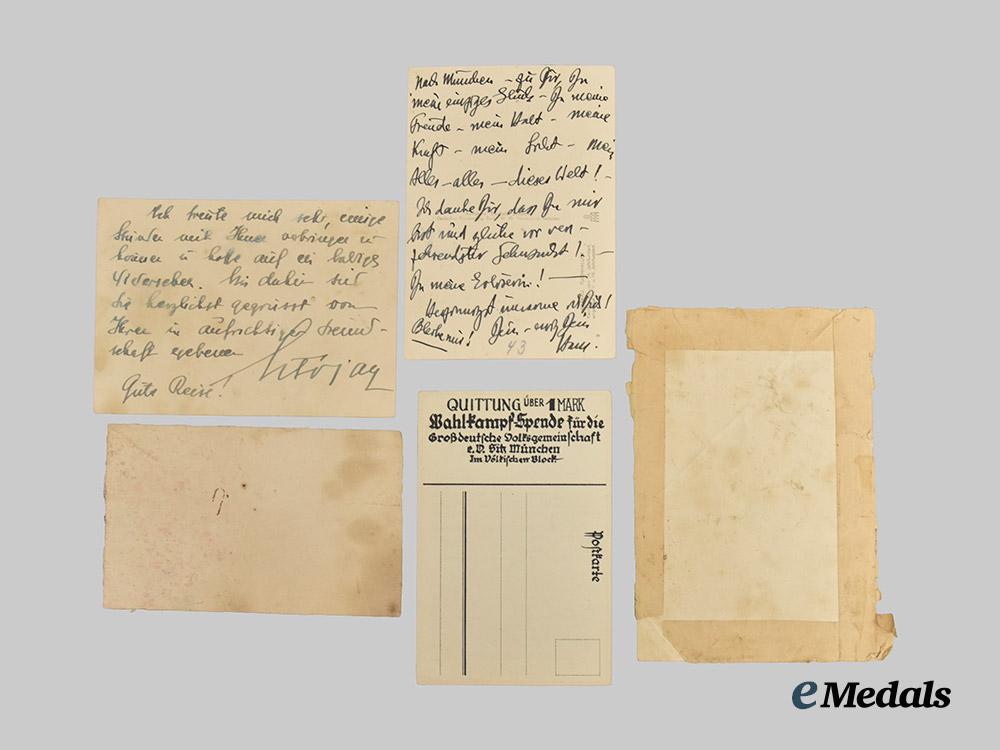 Ich freute mich sehr, einige
Stunden mit Ihnen verbringen zu
können u. hoffe auf ein baldiges
Wiedersehen. Bis dahin sind
Sie herzlichst gegrüsst von
Ihrem in aufrichtiger Freund-
schaft ergebenen
Gute Reise!
Nach München – zu Dir, Du
mein einziges Glück – Du meine
Freude – mein Halt – meine
Kraft – mein – mein
Alles – alles – dieser Welt! –
Ich danke Dir, dass Du mir
bist und glühe vor ver-
zehrendster Sehnsucht! –
Du meine Erlöserin! –
Dein – nur Dein
43
QUITTUNG ÜBER 1 MARK
Wahlkampf-Spende für die
Großdeutsche Volksgemeinschaft
e.V. Sitz München
Im Völkischen Block
Postkarte
eMedals